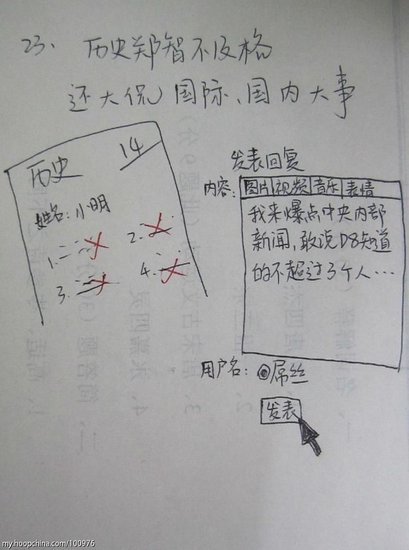 23、历史郑智不及格
还大侃国际、国内大事
历史
14
姓名:小明
1.
2.
3.
4.
发表回复
内容:
图片|视频|音乐|表情
我来爆点中央内部
新闻,敢说D8知道
的不超过3个人…
用户名:
屌丝
发表
my.hoopchina.com/100976